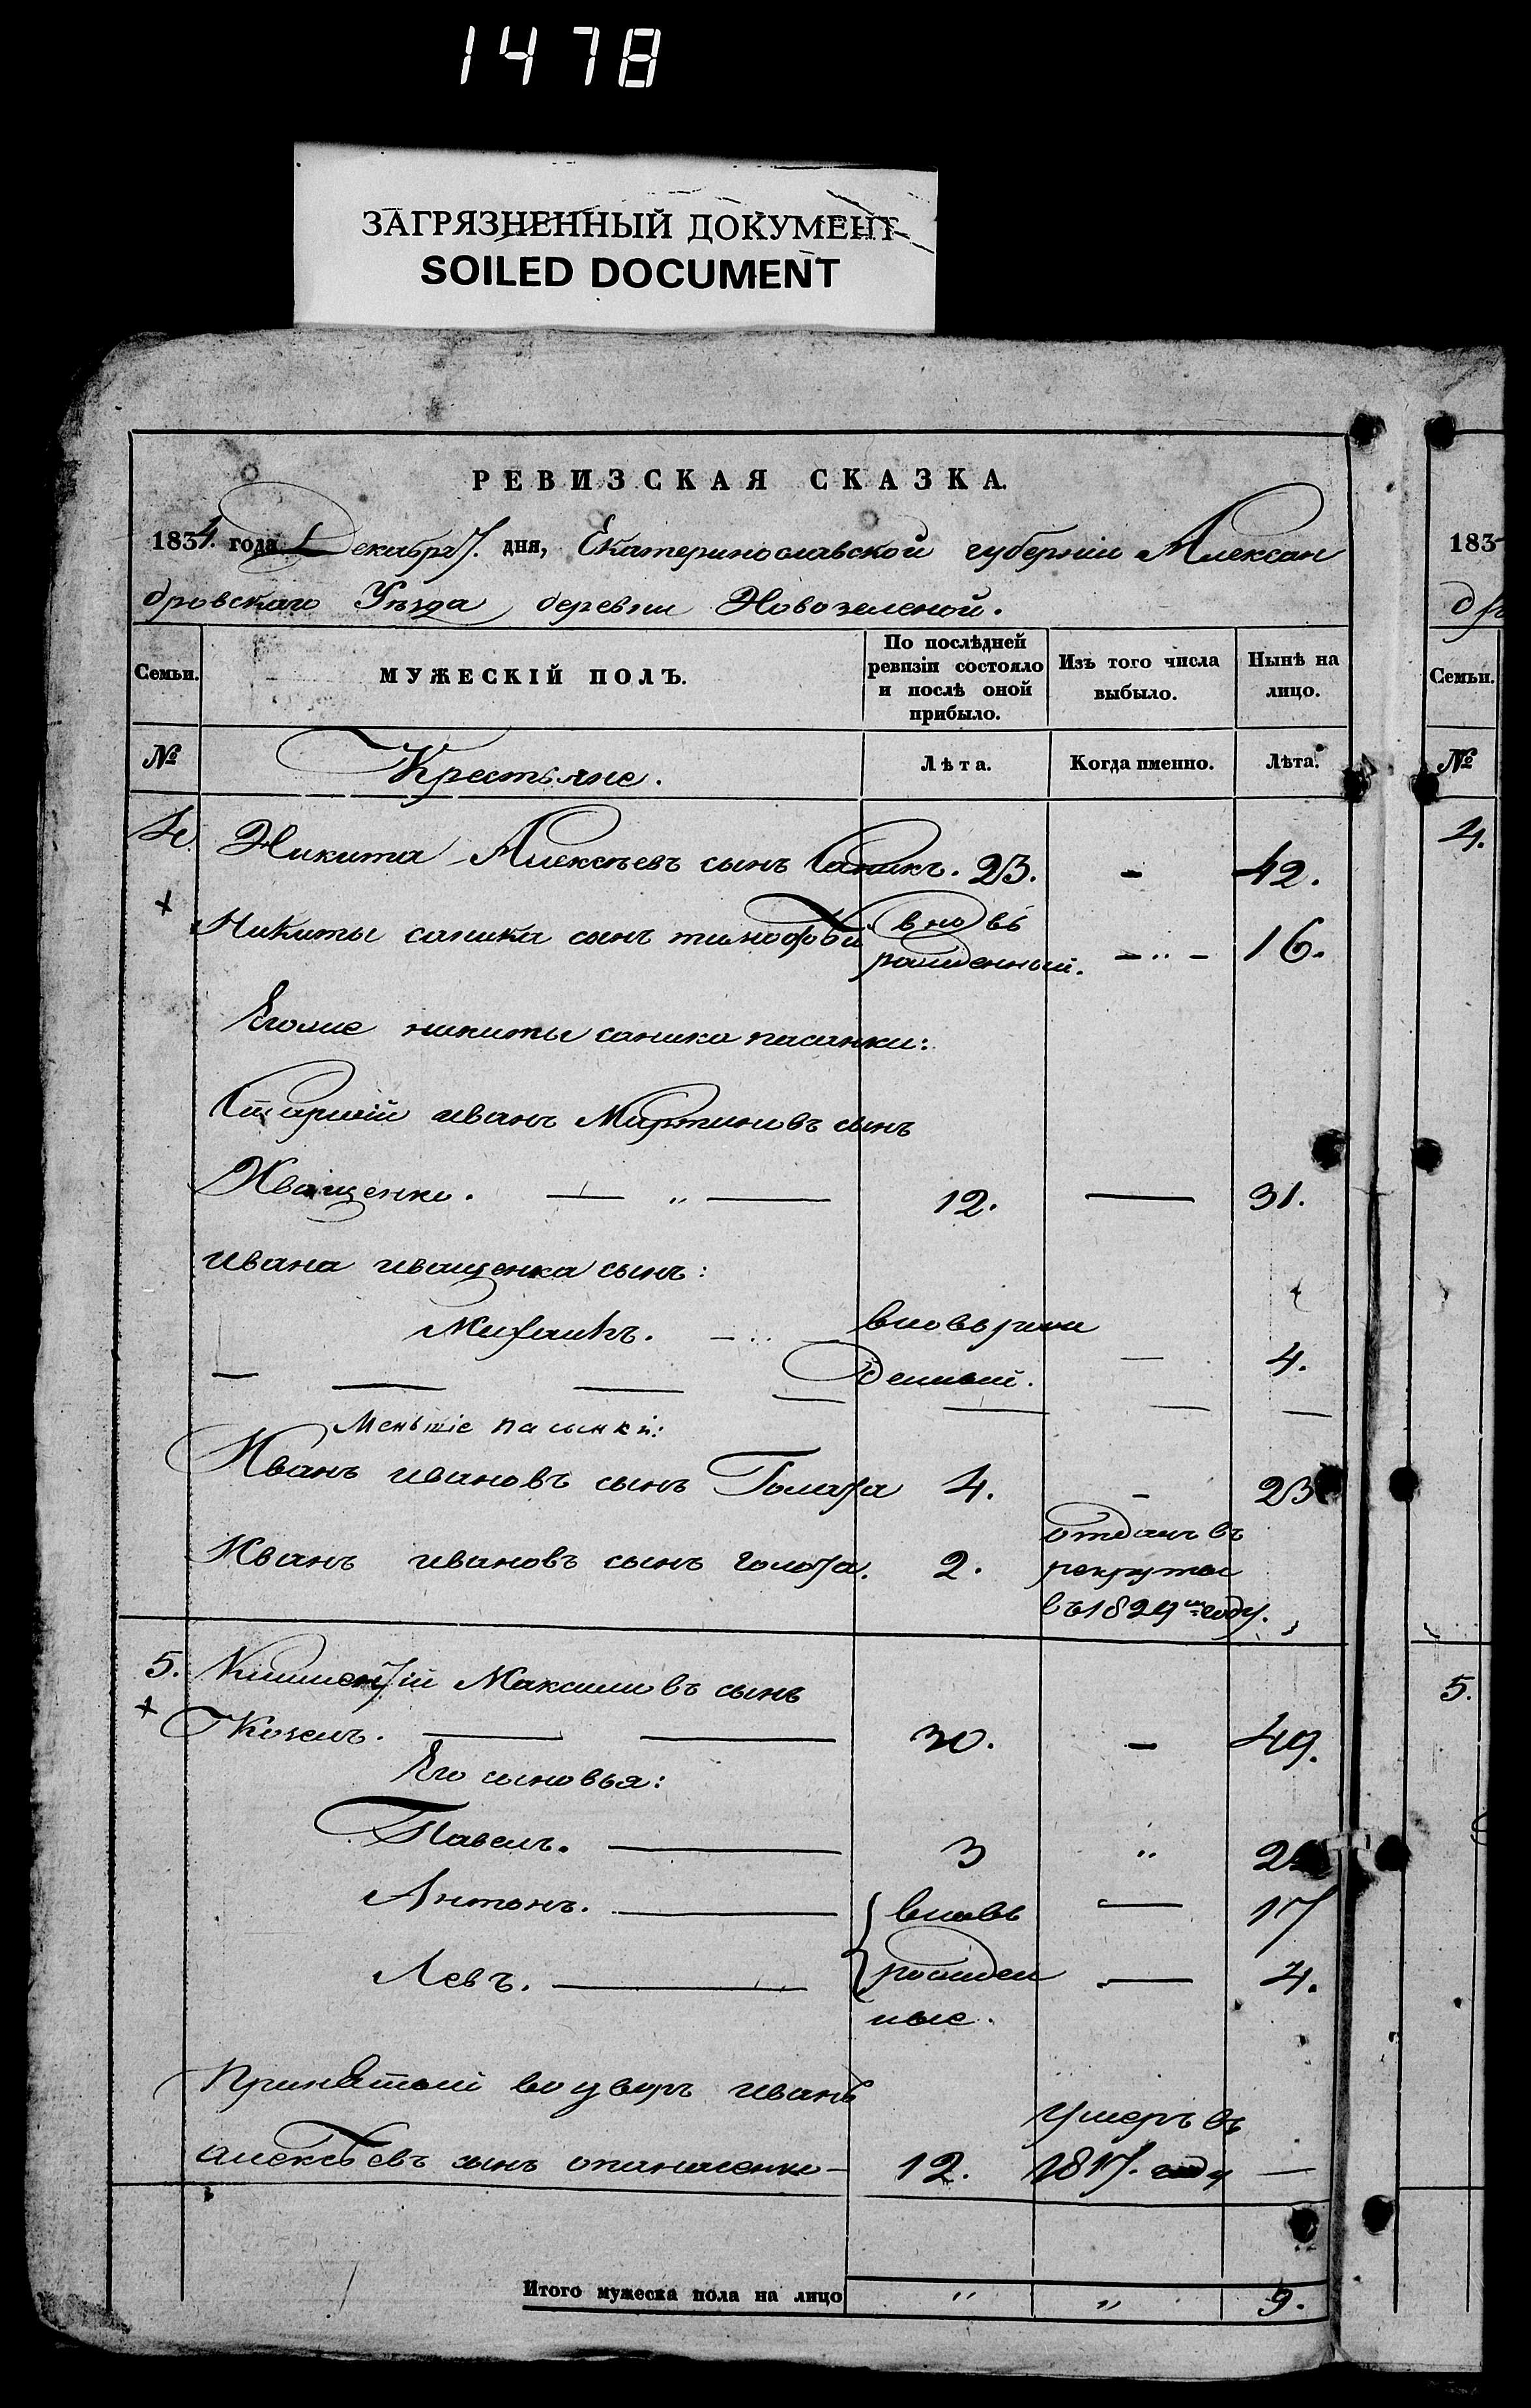 1478
ЗАГРЯЗНЕННЫЙ ДОКУМЕНТ
SOILED DOCUMENT
РЕВИЗСКАЯ СКАЗКА.
1834. года Декабря 7. дня, Екатеринославской губерніи Алексан
дровскаго Уѣзда деревни Новозеленой.
Семьи. МУЖЕСКІЙ ПОЛЪ. По послѣдней ревизіи состояло и послѣ оной прибыло. Изъ того числа выбыло. Нынѣ на лицо.
№ Крестьяне. Лѣта. Когда именно. Лѣта.
4. Никита Алексѣевъ сынъ Саникъ. 23. - 42.
+ Никиты саника сынъ тимофѣй вновь рожденный. - 16.
Егоже никиты саника пасинки:
Старшій иванъ Мартиновъ сынъ
Иващенко. 12. — 31.
ивана иващенка сынъ:
Михаилъ. вновь рож
денный. — 4.
Меньшіе пасынкі:
Иванъ ивановъ сынъ Голота 4. - 23
Иванъ ивановъ сынъ голота. 2. отданъ въ
рекруты
въ 1829 м году.
5. Климентій Максимовъ сынъ
+ Козелъ. 30. - 49.
Его сыновья:
Павелъ. 3 "
Антонъ. вновь — 17
Левъ. рожден — 4.
ные.
Принятый во дворъ иванъ
алексѣевъ сынъ опанасенко 12. умеръ въ
1817. году —
Итого мужеска пола на лицо " " 9.
183
Семьи.
№
4.
5.